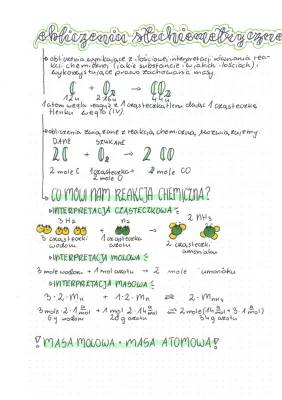 obliczenia stechiometryczne
→ obliczenia wynikające z ilościowej interpretacji równania rea-
kcji chemicznej (jakie substancje i w jakich ilościach) i
wykorzystujące prawo zachowania masy.
C + O₂ → CO₂
12u 2·16u 44u
1 atom węgla reaguje z 1 cząsteczką tlenu dając 1 cząsteczkę
tlenku węgla (IV).
→ obliczenia związane z reakcją chemiczną rozwiązujemy
DANE SZUKANE
2C + O₂ → 2CO
2 mole C 1 cząsteczka 2 mole CO
2 mole O
→ CO MÓWI NAM REAKCJA CHEMICZNA?
→ INTERPRETACJA CZĄSTECZKOWA:
3 H₂ N₂ 2 NH₃
3 cząsteczki 1 cząsteczka 2 cząsteczki
wodoru azotu amoniaku
→ INTERPRETACJA MOLOWA:
3 mole wodoru + 1 mol azotu → 2 mole amoniaku
→ INTERPRETACJA MASOWA:
3·2·Mн + 1·2·Mɴ ⇌ 2·Mɴʜ₃
3 mole·2·1 g/mol + 1 mol·2·14 g/mol ⇌ 2 mole (14 g/mol + 3·1 g/mol)
6g wodoru 28g azotu 34g amoniaku
! MASA MOLOWA = MASA ATOMOWA !